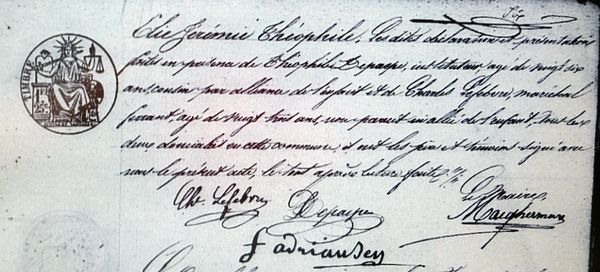 Elie Jérémie Théophile, Les dites déclaration et présentation
faites en présence de Théophile Depaepe, instituteur agé de vingt six
ans, cousin par alliance de l'enfant et de Charles Lefebvre, maréchal
ferrant, agé de vingt trois ans, non parent ni allié de l'enfant, tous les
deux domiciliés en cette commune, et ont les père et témoins signé avec
nous le présent acte, le tout après lecture faite
TIMBRE
Le Maire
Ch. Lefebvre Depaepe
f adriansen